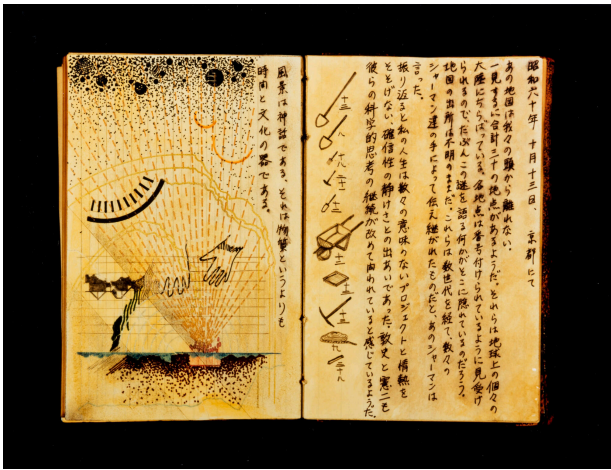 昭和六十年 十月十三日、 京都にて
あの地図は我々の頭から離れない。
一見するに合計三十の地点があるようだ。それらは地球上の個々の
大陸にちらばっている。各地点は番号付けられているように見受け
られるので、たぶんこの謎を語る何かがそこに隠れているのだろう。
地図の出所は不明のままだ。これらは数世代を経て、数々の
シャーマン達の手によって伝え継がれたものだと、あのシャーマンは
言った。
振り返ると私の人生は数々の意味のないプロジェクトと情熱を
ととげない、確信性の静けさとの出あいであった。敦史と憲二も
彼らの科学的思考の継続が改めて問われていると感じているようだ。
風景は神話である、それは物質というよりも
時間と文化の器である。